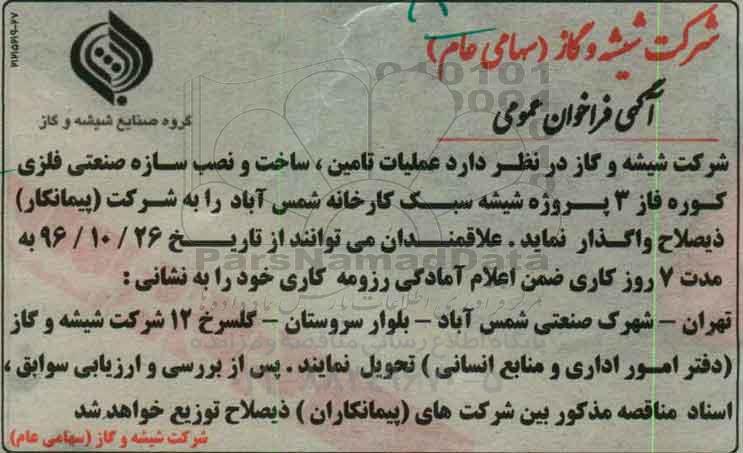 شرکت شیشه و گاز (سهامی عام)
آگهی فراخوان عمومی
گروه صنایع شیشه و گاز
شرکت شیشه و گاز در نظر دارد عملیات تامین ، ساخت و نصب سازه صنعتی فلزی
کوره فاز ۳ پروژه شیشه سبک کارخانه شمس آباد را به شرکت (پیمانکار)
ذیصلاح واگذار نماید . علاقمندان می توانند از تاریخ ۲۶ / ۱۰ / ۹۶ به
مدت ۷ روز کاری ضمن اعلام آمادگی رزومه کاری خود را به نشانی :
تهران – شهرک صنعتی شمس آباد – بلوار سروستان – گلسرخ ۱۲ شرکت شیشه و گاز
(دفتر امور اداری و منابع انسانی ) تحویل نمایند . پس از بررسی و ارزیابی سوابق ،
اسناد مناقصه مذکور بین شرکت های (پیمانکاران ) ذیصلاح توزیع خواهد شد
شرکت شیشه و گاز (سهامی عام)
ParsNamadData
پایگاه اطلاع رسانی مناقصه و مزایده